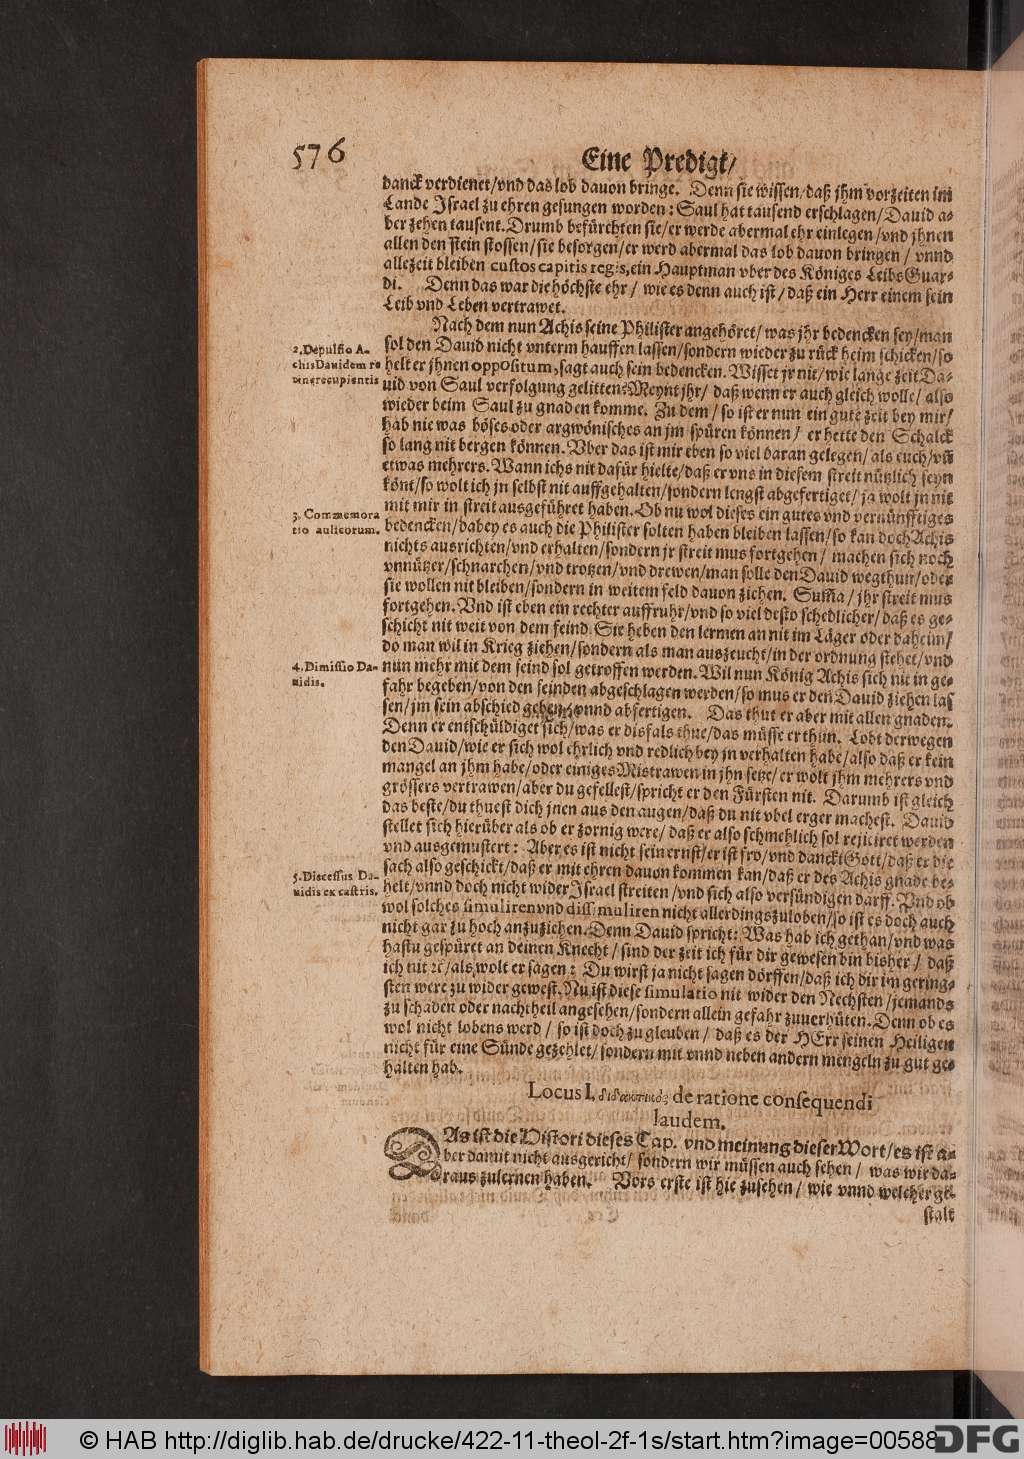 576
Eine Predigt/
danck verdienet/vnd das lob dauon bringe. Denn sie wissen/daß jhm vorzeiten im
Lande Israel zu ehren gesungen worden: Saul hat tausend erschlagen/Dauid a-
ber zehen tausent. Drumb befürchten sie/er werde abermal ehr einlegen/vnd jhnen
allen den stein stossen/sie besorgen/er werd abermal das lob dauon bringen/ vnnd
allezeit bleiben custos capitis regis, ein Hauptman vber des Königes Leibs Guar-
di. Denn das war die höchste ehr/ wie es denn auch ist/daß ein Herr einem sein
Leib vnd Leben vertrawet.
Nach dem nun Achis seine Philister angehöret/ was jhr bedencken sey/man
2. Depulsio A-
chis Dauidem re
uincere cupientis
sol den Dauid nicht vnterm hauffen lassen/sondern wieder zu rück heim schicken/so
helt er jhnen oppositum, sagt auch sein bedencken. Wisset jr nit/wie lange zeit Da-
uid von Saul verfolgung gelitten? Meynt jhr/ daß wenn er auch gleich wolle/ also
wieder beim Saul zu gnaden komme. Zu dem/ so ist er nun ein gute zeit bey mir/
hab nie was böses oder argwönisches an jm spüren können/ er hette den Schalck
so lang nit bergen können. Vber das ist mir eben so viel daran gelegen/ als euch/vñ
etwas mehrers. Wann ichs nit dafür hielte/daß er vns in diesem streit nützlich seyn
könt/so wolt ich jn selbst nit auffgehalten/sondern lengst abgefertiget/ ja wolt jn nit
3. Commemora
tio aulicorum.
mit mir in streit ausgeführet haben. Ob nu wol dieses ein gutes vnd vernünfftiges
bedencken/dabey es auch die Philister solten haben bleiben lassen/so kan doch Achis
nichts ausrichten/vnd erhalten/sondern jr streit mus fortgehen/ machen sich noch
vnnützer/schnarchen/vnd trotzen/vnd drewen/man solle den Dauid wegthun/oder
sie wollen nit bleiben/sondern in weitem feld dauon ziehen. Suma/ jhr streit mus
fortgehen. Vnd ist eben ein rechter auffruhr/vnd so viel desto schedlicher/daß es ge-
schicht nit weit von dem feind. Sie heben den lermen an nit im Läger oder daheim/
do man wil in Krieg ziehen/sondern als man auszeucht/in der ordnung stehet/vnd
4. Dimissio Da-
uidis.
nun mehr mit dem feind sol getroffen werden. Wil nun König Achis sich nit in ge-
fahr begeben/von den feinden abgeschlagen werden/so mus er den Dauid ziehen las
sen/jm sein abschied geben/vnnd abfertigen. Das thut er aber mit allen gnaden.
Denn er entschüldiget sich/was er disfals thue/das müsse er thun. Lobt derwegen
den Dauid/wie er sich wol ehrlich vnd redlich bey jn verhalten habe/also daß er kein
mangel an jhm habe/oder einiges Mistrawen in jhn setze/ er wölt jhm mehrers vnd
grössers vertrawen/aber du gefellest/spricht er den Fürsten nit. Darumb ist gleich
das beste/du thuest dich jnen aus den augen/daß du nit vbel erger machest. Dauid
stellet sich hierüber als ob er zornig were/ daß er also schmehlich sol rejiciret werden
vnd ausgemustert: Aber es ist nicht sein ernst/er ist fro/vnd danckt Gott/daß er die
5. Discessus Da-
uidis ex castris.
sach also geschickt/daß er mit ehren dauon kommen kan/daß er des Achis gnade be-
helt/vnnd doch nicht wider Israel streiten/vnd sich also versündigen darff. Vnd ob
wol solches simuliren vnd dissimuliren nicht allerdings zuloben/so ist es doch auch
nicht gar zu hoch anzuziehen. Denn Dauid spricht: Was hab ich gethan/vnd was
hastu gespüret an deinen Knecht/ sind der zeit ich für dir gewesen bin bisher/ daß
ich nit ꝛc/als wolt er sagen: Du wirst ja nicht sagen dörffen/daß ich dir im gering-
sten were zu wider gewest. Nu ist diese simulatio nit wider den Nechsten/jemands
zu schaden oder nachtheil angesehen/sondern allein gefahr zuuerhüten. Denn ob es
wol nicht lobens werd/ so ist doch zu gleuben/ daß es der HErr seinen Heiligen
nicht für eine Sünde gezehlet/ sondern mit vnnd neben andern mengeln zu gut ge-
halten hab.
Locus I. διδακτικὸς de ratione consequendi
laudem.
DAs ist die Histori dieses Cap. vnd meinung dieser Wort/es ist a-
ber damit nicht ausgericht/ sondern wir müssen auch sehen/ was wir da-
raus zulernen haben. Vors erste ist hie zusehen/ wie vnnd welcher ge-
stalt
© HAB http://diglib.hab.de/drucke/422-11-theol-2f-1s/start.htm?image=00588
DFG